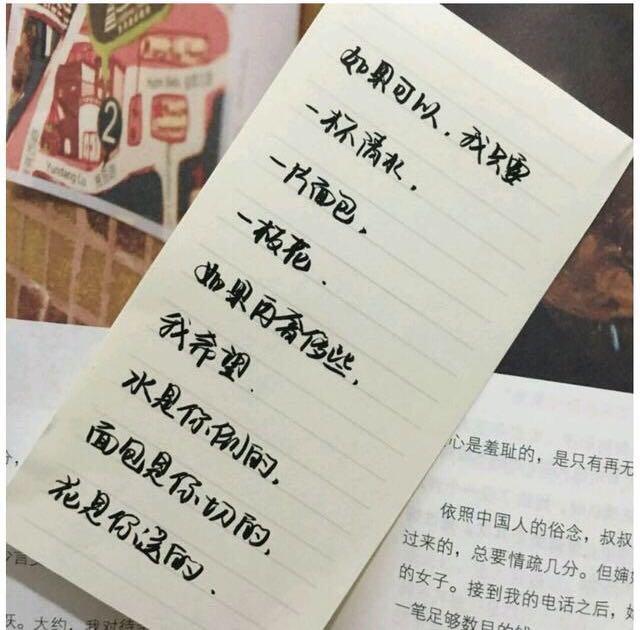 如果可以，我只要
一杯清水，
一片面包，
一枝花.
如果再奢侈些，
我希望.
水是你倒的，
面包是你切的，
花是你送的.
2
Yundang Lu
心是羞耻的，是只有再无
依照中国人的俗念，叔叔
过来的，总要情疏几分。但婶
的女子。接到我的电话之后，
一笔足够数目的
大约，我对待